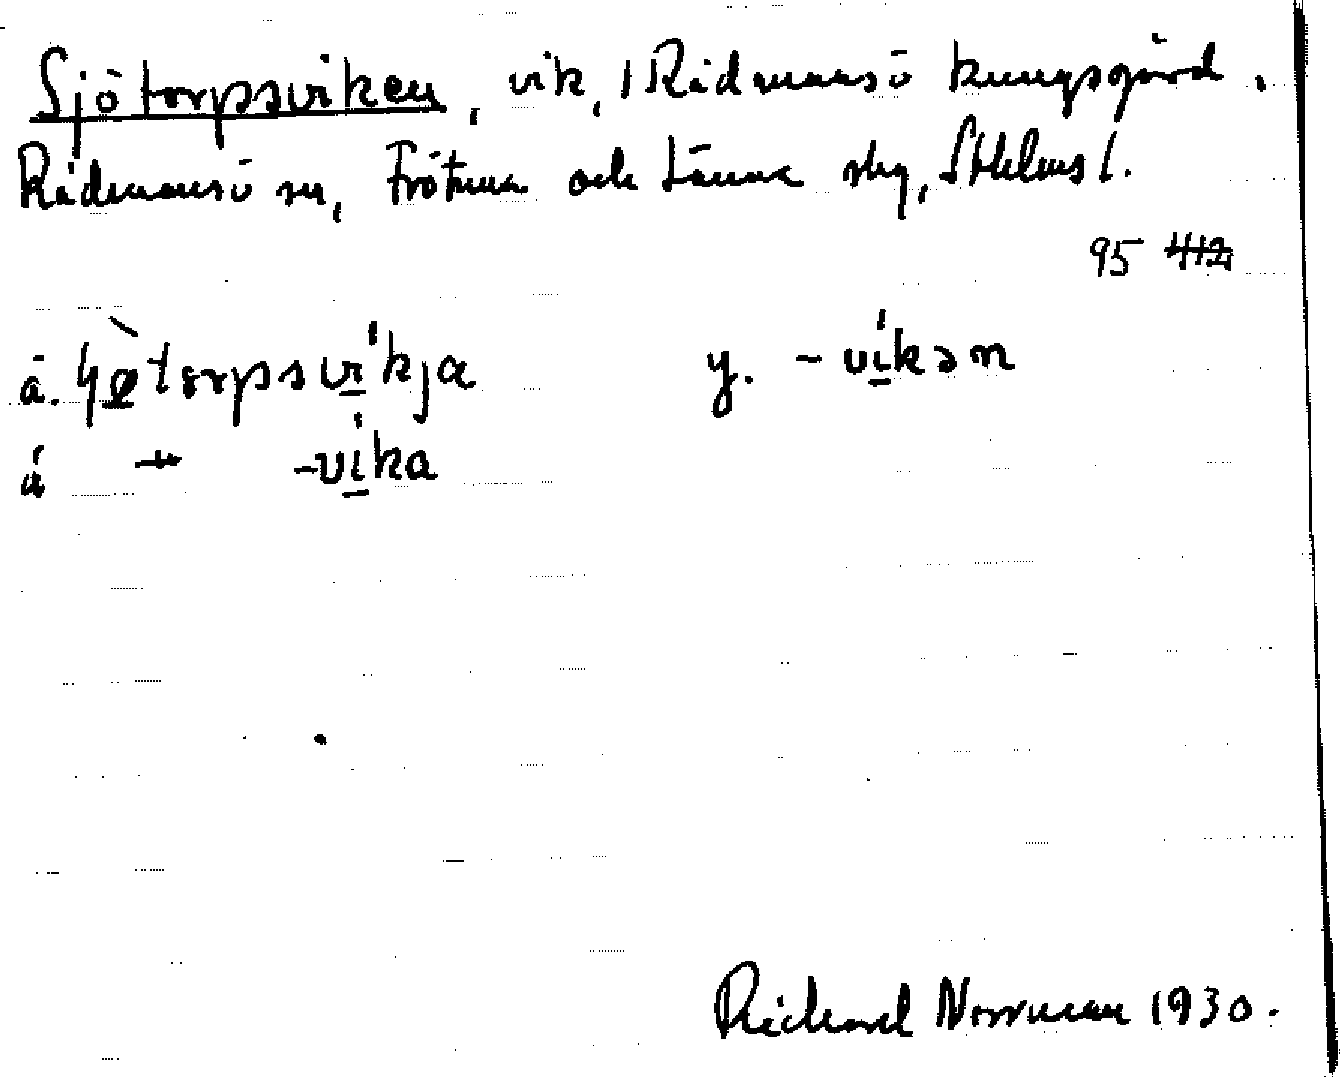 Sjötorpsviken, vik, 1 Rådmansö kungsgård.
Rådmansö sn, Frötuna och Länna skg, Sthlms l.
95 412
ä. ɧø̀torpsvi̱'kja y. -vi̱'kən
á -"- -vi̱'ka
Richard Norrman 1930.